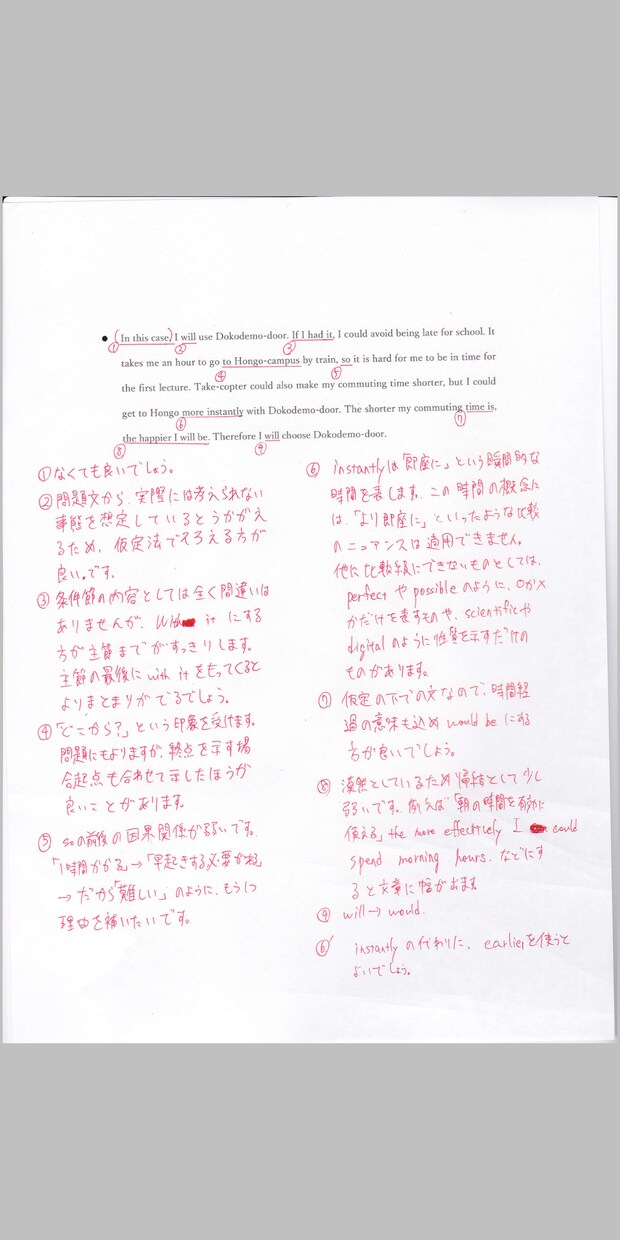 ● (In this case,) I will use Dokodemo-door. If I had it, I could avoid being late for school. It
① ② ③
takes me an hour to go to Hongo-campus by train, so it is hard for me to be in time for
④ ⑤
the first lecture. Take-copter could also make my commuting time shorter, but I could
get to Hongo more instantly with Dokodemo-door. The shorter my commuting time is,
⑥ ⑦
the happier I will be. Therefore I will choose Dokodemo-door.
⑧ ⑨
① なくても良いでしょう。
② 問題文から、実際には考えられない
事態を想定しているとうかがえ
るため、仮定法でそろえる方が
良いです。
③ 条件節の内容としては全く間違いは
ありませんが、With it にする
方が主節までがすっきりします。
主節の最後に with it をもってくると
よりまとまりがでるでしょう。
④ 「どこから?」という印象を受けます。
問題にもよりますが、終点を示す場
合起点も合わせて示したほうが
良いことがあります。
⑤ soの前後の因果関係が弱いです。
「1時間かかる」→「早起きする必要がある」
→だから「難しい」のように、もう1つ
理由を補いたいです。
⑥ instantlyは「即座に」という瞬間的な
時間を表します。この時間の概念に
は、「より即座に」といったような比較
のニュアンスは適用できません。
他に比較級にできないものとしては、
perfect や possible のように、0か×
かだけを表すものや、scientificや
digital のように性質を示すだけの
ものがあります。
⑦ 仮定の下での文なので、時間経
過の意味も込め would be にする
方が良いでしょう。
⑧ 漠然としているため帰結として少し
弱いです。例えば「朝の時間を有効に
使える」 the more effectively I could
spend morning hours. などにす
ると文章に幅が出ます
⑨ will → would.
⑥' instantly の代わりに、earlierを使うと
よいでしょう。